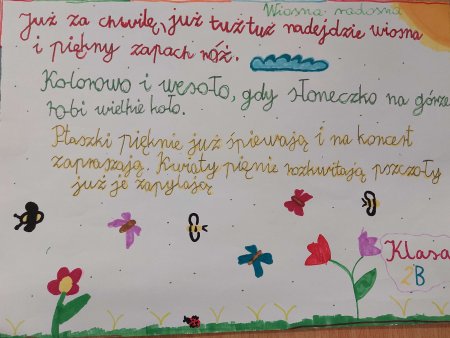 Wiosna radosna
Już za chwilę, już tuż tuż nadejdzie wiosna
i piękny zapach róż.
Kolorowo i wesoło, gdy słoneczko na górze
robi wielkie koło.
Ptaszki pięknie już śpiewają i na koncert
zapraszają. Kwiaty pięnie rozkwitają pszczoły
już je zapylają
Klasa
2B